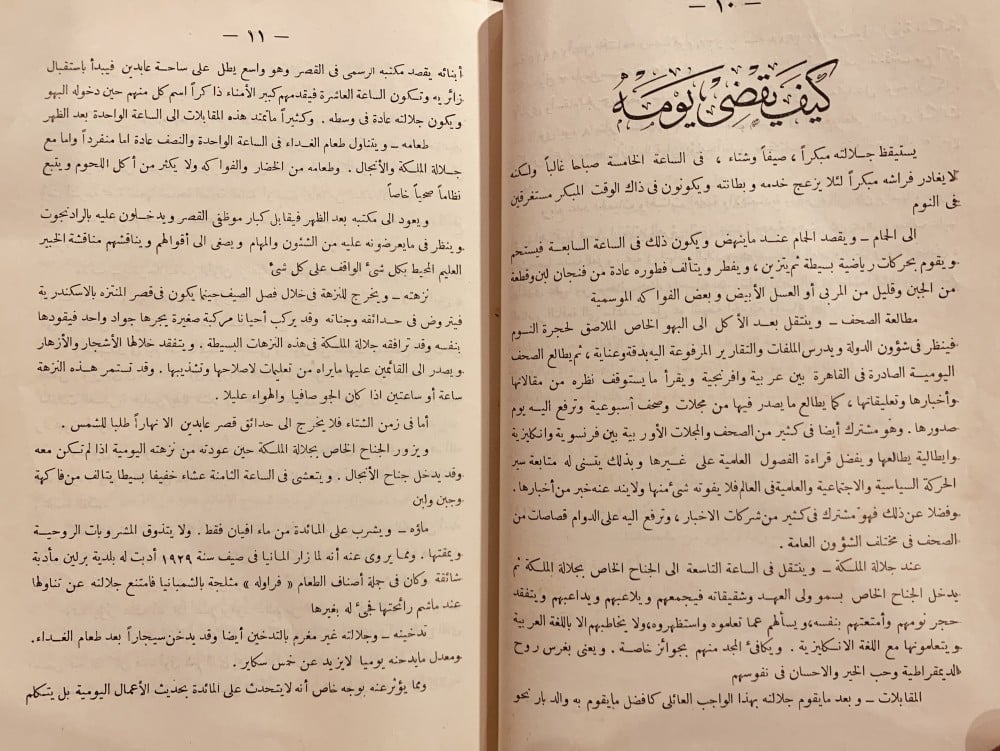 — ١٠ —
كيف يقضي يومه
يستيقظ جلالته مبكراً ، صيفاً وشتاء ، فى الساعة الخامسة صباحا غالباً ولكنه
لا يغادر فراشه مبكراً لئلا يزعج خدمه وبطانته ويكونون فى ذاك الوقت المبكر مستغرقين
فى النوم
الى الحمام — ويقصد الحمام عند ما ينهض ويكون ذلك فى الساعة السابعة فيستحم
ويقوم بحركات رياضية بسيطة ثم يتزين ، ويفطر ويتألف فطوره عادة من فنجان لبن وقطعة
من الجبن وقليل من المربى أو العسل الأبيض وبعض الفواكه الموسمية
مطالعة الصحف — وينتقل بعد الأكل الى البهو الخاص الملاصق لحجرة النوم
فينظر فى شؤون الدولة ويدرس الملفات والتقارير المرفوعة اليه بدقة وعناية ، ثم يطالع الصحف
اليومية الصادرة فى القاهرة بين عربية وافرنجية ويقرأ ما يستوقف نظره من مقالاتها
وأخبارها وتعليقاتها ، كما يطالع ما يصدر فيها من مجلات وصحف أسبوعية وترفع اليه يوم
صدورها . وهو مشترك أيضا فى كثير من الصحف والمجلات الأوربية بين فرنسوية وانكليزية
وايطالية يطالعها ويفضل قراءة الفصول العامية على غيرها وبذلك يتسنى له متابعة سير
الحركة السياسية والاجتماعية والعامية فى العالم فلا يفوته شىء منها ولا يند عنه خبر من أخبارها .
وفضلا عن ذلك فهو مشترك فى كثير من شركات الاخبار ، وترفع اليه على الدوام قصاصات من
الصحف فى مختلف الشؤون العامة .
عند جلالة الملكة — وينتقل فى الساعة التاسعة الى الجناح الخاص بجلالة الملكة ثم
يدخل الجناح الخاص بسمو ولى العهد وشقيقاته فيجمعهم ويلاعبهم ويداعبهم ويتفقد
حجر نومهم وأمتعتهم بنفسه، ويسألهم عما تعلموه واستظهروه، ولا يخاطبهم الا باللغة العربية
ويتعلمونها مع اللغة الانكليزية . ويكافئ المجد منهم بجوائز خاصة . ويعنى بغرس روح
الديمقراطية وحب الخير والاحسان فى نفوسهم
المقابلات — وبعد ما يقوم جلالته بهذا الواجب العائلى كافضل مايقوم به والد بار نحو
— ١١ —
أبنائه يقصد مكتبه الرسمى فى القصر وهو واسع يطل على ساحة عابدين فيبدأ باستقبال
زائريه وتكون الساعة العاشرة فيقدمهم كبير الأمناء ذاكراً اسم كل منهم حين دخوله البهو
ويكون جلالته عادة فى وسطه . وكثيراً ما تمتد هذه المقابلات الى الساعة الواحدة بعد الظهر
طعامه — ويتناول طعام الغداء فى الساعة الواحدة والنصف عادة اما منفرداً واما مع
جلالة الملكة والأنجال . وطعامه من الخضار والفواكه ولا يكثر من أكل اللحوم ويتبع
نظاماً صحياً خاصاً
ويعود الى مكتبه بعد الظهر فيقابل كبار موظفى القصر ويدخلون عليه بالردنجوت
وينظر فى مايعرضونه عليه من الشئون والمهام ويصغى الى أقوالهم ويناقشهم مناقشة الخبير
العليم المحيط بكل شئ الواقف على كل شئ
نزهته — ويخرج للنزهة فى خلال فصل الصيف حينما يكون فى قصر المنتزه بالاسكندرية
فيتروض فى حدائقه وجناته وقد يركب أحيانا مركبة صغيرة يجرها جواد واحد فيقودها
بنفسه وقد ترافقه جلالة الملكة فى هذه النزهات البسيطة . ويتفقد خلالها الأشجار والأزهار
ويصدر الى القائمين عليها مايراه من تعليمات لاصلاحها وتشذيبها . وقد تستمر هذه النزهة
ساعة أو ساعتين اذا كان الجو صافيا والهواء عليلا .
أما فى زمن الشتاء فلا يخرج الى حدائق قصر عابدين الا نهاراً طلبا للشمس .
ويزور الجناح الخاص بجلالة الملكة حين عودته من نزهته اليومية اذا لم تكن معه
وقد يدخل جناح الأنجال . ويتعشى فى الساعة الثامنة عشاء خفيفا بسيطا يتالف من فاكهة
وجبن ولبن
ماؤه — ويشرب على المائدة من ماء افيان فقط . ولا يتذوق المشروبات الروحية
ويمقتها . ومما يروى عنه أنه لما زار المانيا فى صيف سنة ١٩٢٩ أدبت له بلدية برلين مأدبة
شائقة وكان فى جملة أصناف الطعام « فراوله » مثلجة بالشمبانيا فامتنع جلالته عن تناولها
عند ماشم رائحتها فجىء له بغيرها
تدخينه — وجلالته غير مغرم بالتدخين أيضا وقد يدخن سيجاراً بعد طعام الغداء.
ومعدل مايدخنه يوميا لا يزيد عن خمس سكاير .
ومما يؤثر عنه بوجه خاص أنه لا يتحدث على المائدة بحديث الأعمال اليومية بل يتكلم